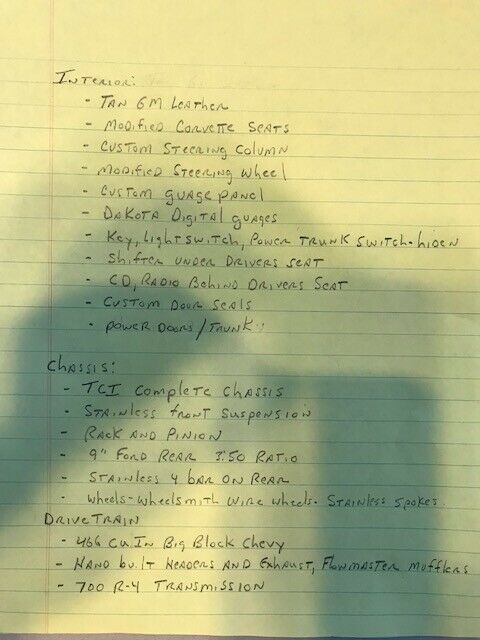 Interior:
- Tan GM Leather
- Modified Corvette Seats
- Custom Steering Column
- Modified Steering Wheel
- Custom guage panel
- Dakota Digital guages
- Key, Light switch, Power Trunk Switch-hiden
- Shifter under Drivers seat
- CD, Radio Behind Drivers Seat
- Custom Door Seals
- Power Doors/Trunk
Chassis:
- TCI Complete Chassis
- Stainless front suspension
- Rack and Pinion
- 9" Ford Rear 3:50 Ratio
- Stainless 4 bar on Rear
- Wheels-Wheelsmith Wire wheels- Stainless Spokes
DriveTrain
- 466 Cu.In Big Block Chevy
- Hand built Headers and Exhaust, Flowmaster Mufflers
- 700 R-4 Transmission